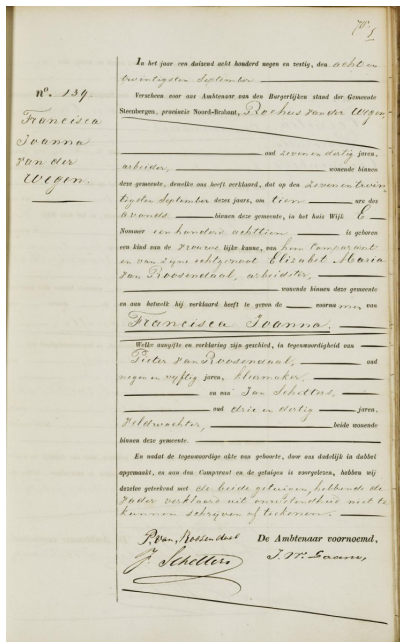 N°. 139.
Francisca
Joanna
van der
Wegen.
In het jaar een duizend acht honderd negen en vestig, den acht en
twintigsten September
Verscheen voor ons Ambtenaar van den Burgerlijken stand der Gemeente
Steenbergen, provincie Noord-Brabant, Rochus van der Wegen
oud zeven en dertig jaren,
arbeider, wonende binnen
deze gemeente, dewelke ons heeft verklaard, dat op den zeven en twin
tigsten September dezes jaars, om tien ure des
avonds binnen deze gemeente, in het huis Wijk E
Nommer een honderd achttien is geboren
een kind van de vrouwelijke kunne, van hem Comparant
en van zijne echtgenoot Elizabet Maria
van Roosendaal, arbeidster,
wonende binnen deze gemeente
en aan hetwelk hij verklaard heeft te geven de voornamen van
Francisca Joanna.
Welke aangifte en verklaring zijn geschied, in tegenwoordigheid van
Pieter van Roosendaal, oud
negen en vijftig jaren, kleermaker,
en aan Jan Schetters,
oud drie en dertig jaren,
veldwachter, beide wonende
binnen deze gemeente.
En nadat de tegenwoordige akte van geboorte, door ons dadelijk in dubbel
opgemaakt, en aan den Comparant en de getuigen is voorgelezen, hebben wij
dezelve geteekend met de beide getuigen, hebbende de
vader verklaard uit onwetendheid niet te
kunnen schrijven of teekenen.
P. van Roosendaal De Ambtenaar voornoemd,
J. Schetters